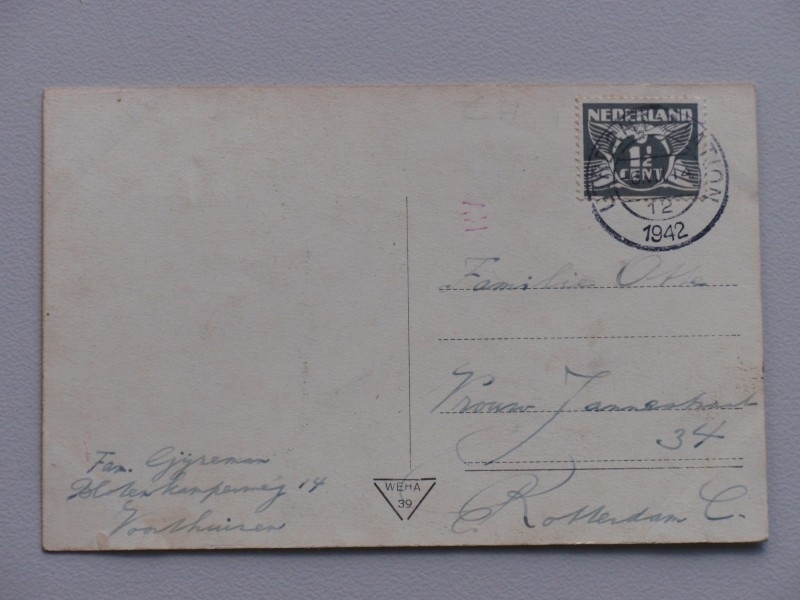 NEDERLAND
1½
CENT
12
1942
Familie Otte
Vrouw Jannestraat
34
Rotterdam C.
Fam. Gijseman
14
Voorthuizen
WEHA
39